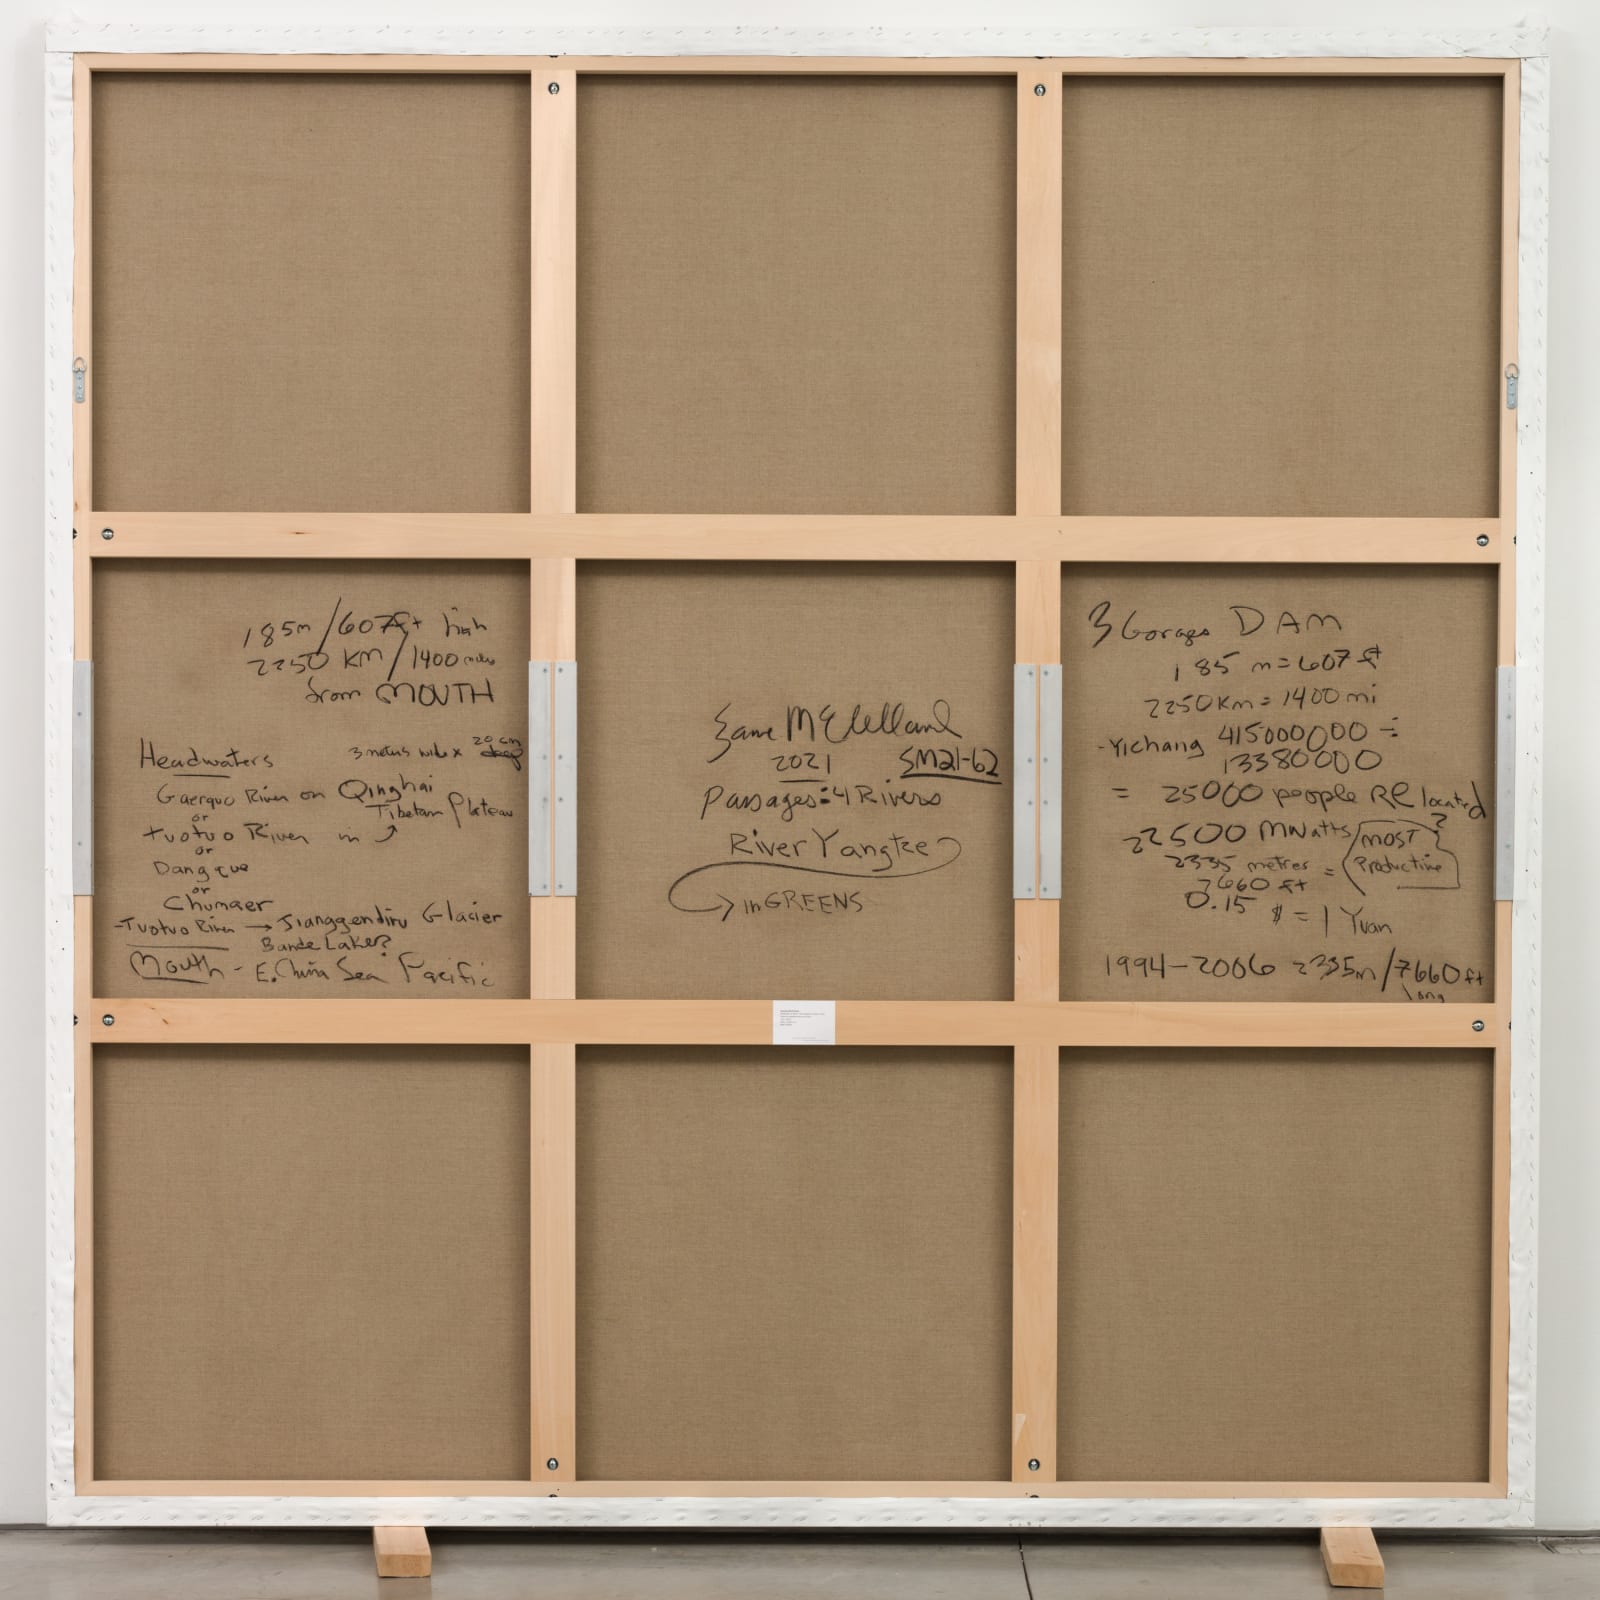 185m/607ft high
2250 KM/1400 miles
from MOUTH
Headwaters 3 meters wide x 20 cm
Gaerquo River on Qinghai
Tibetan Plateau
or
Tuotuo River in
or
Dangque
or
Chumaer
-Tuotuo River → Jianggendiru Glacier
Bande Lake?
Mouth - E. China Sea Pacific
Suzanne McClelland
2021 SM21-62
Passages: 4 Rivers
River Yangtze
→ in GREENS
3 Gorges DAM
185 m = 607 ft
2250 Km = 1400 mi
-Yichang 415000000 ÷
13380000
= 25000 people RElocated
?
22500 MWatts/MOST
2335 metres = Productive
7660 ft
0.15 $ = 1 Yuan
1994-2006 2335m/7660ft
long